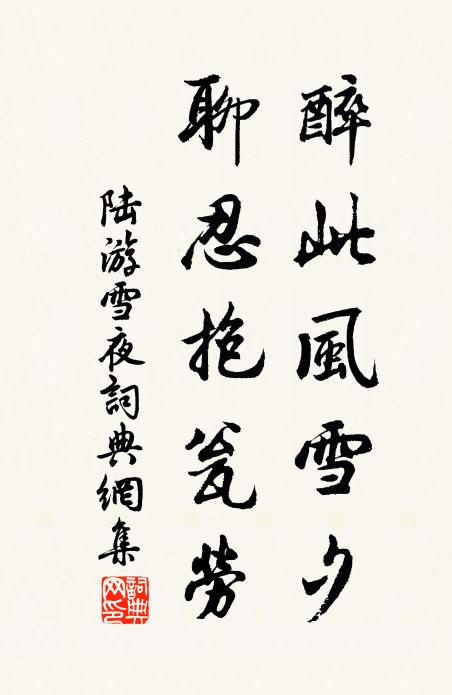 醉此風雪夕
聊忍抱瓮勞
陆游雪夜詞典網集
詞典网印